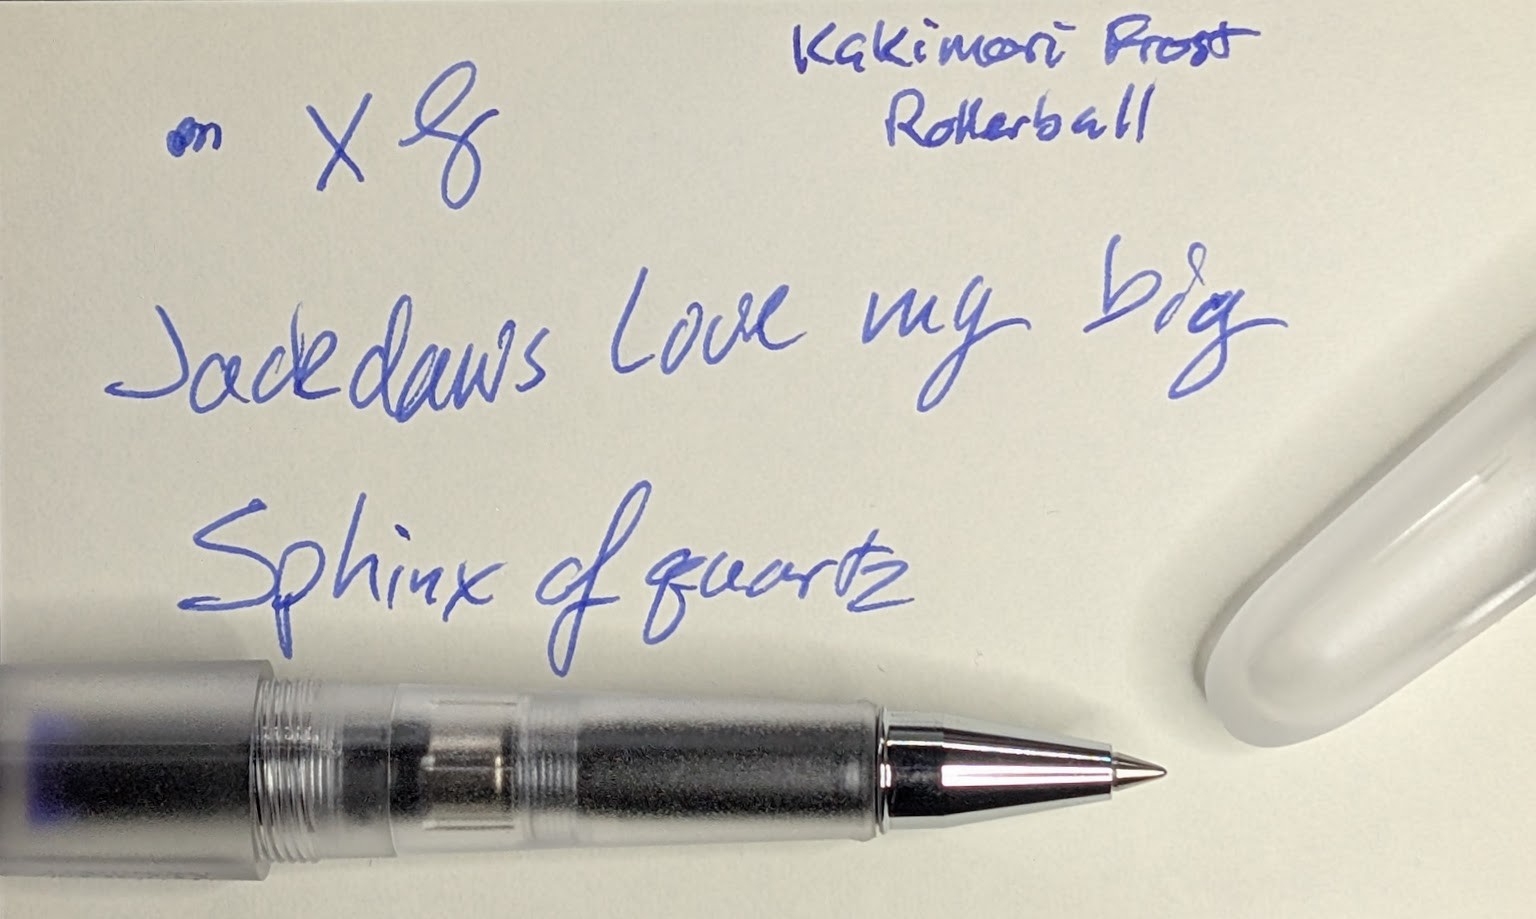 Kakimori Frost
Rollerball
X
Jackdaws love my big
Sphinx of quartz